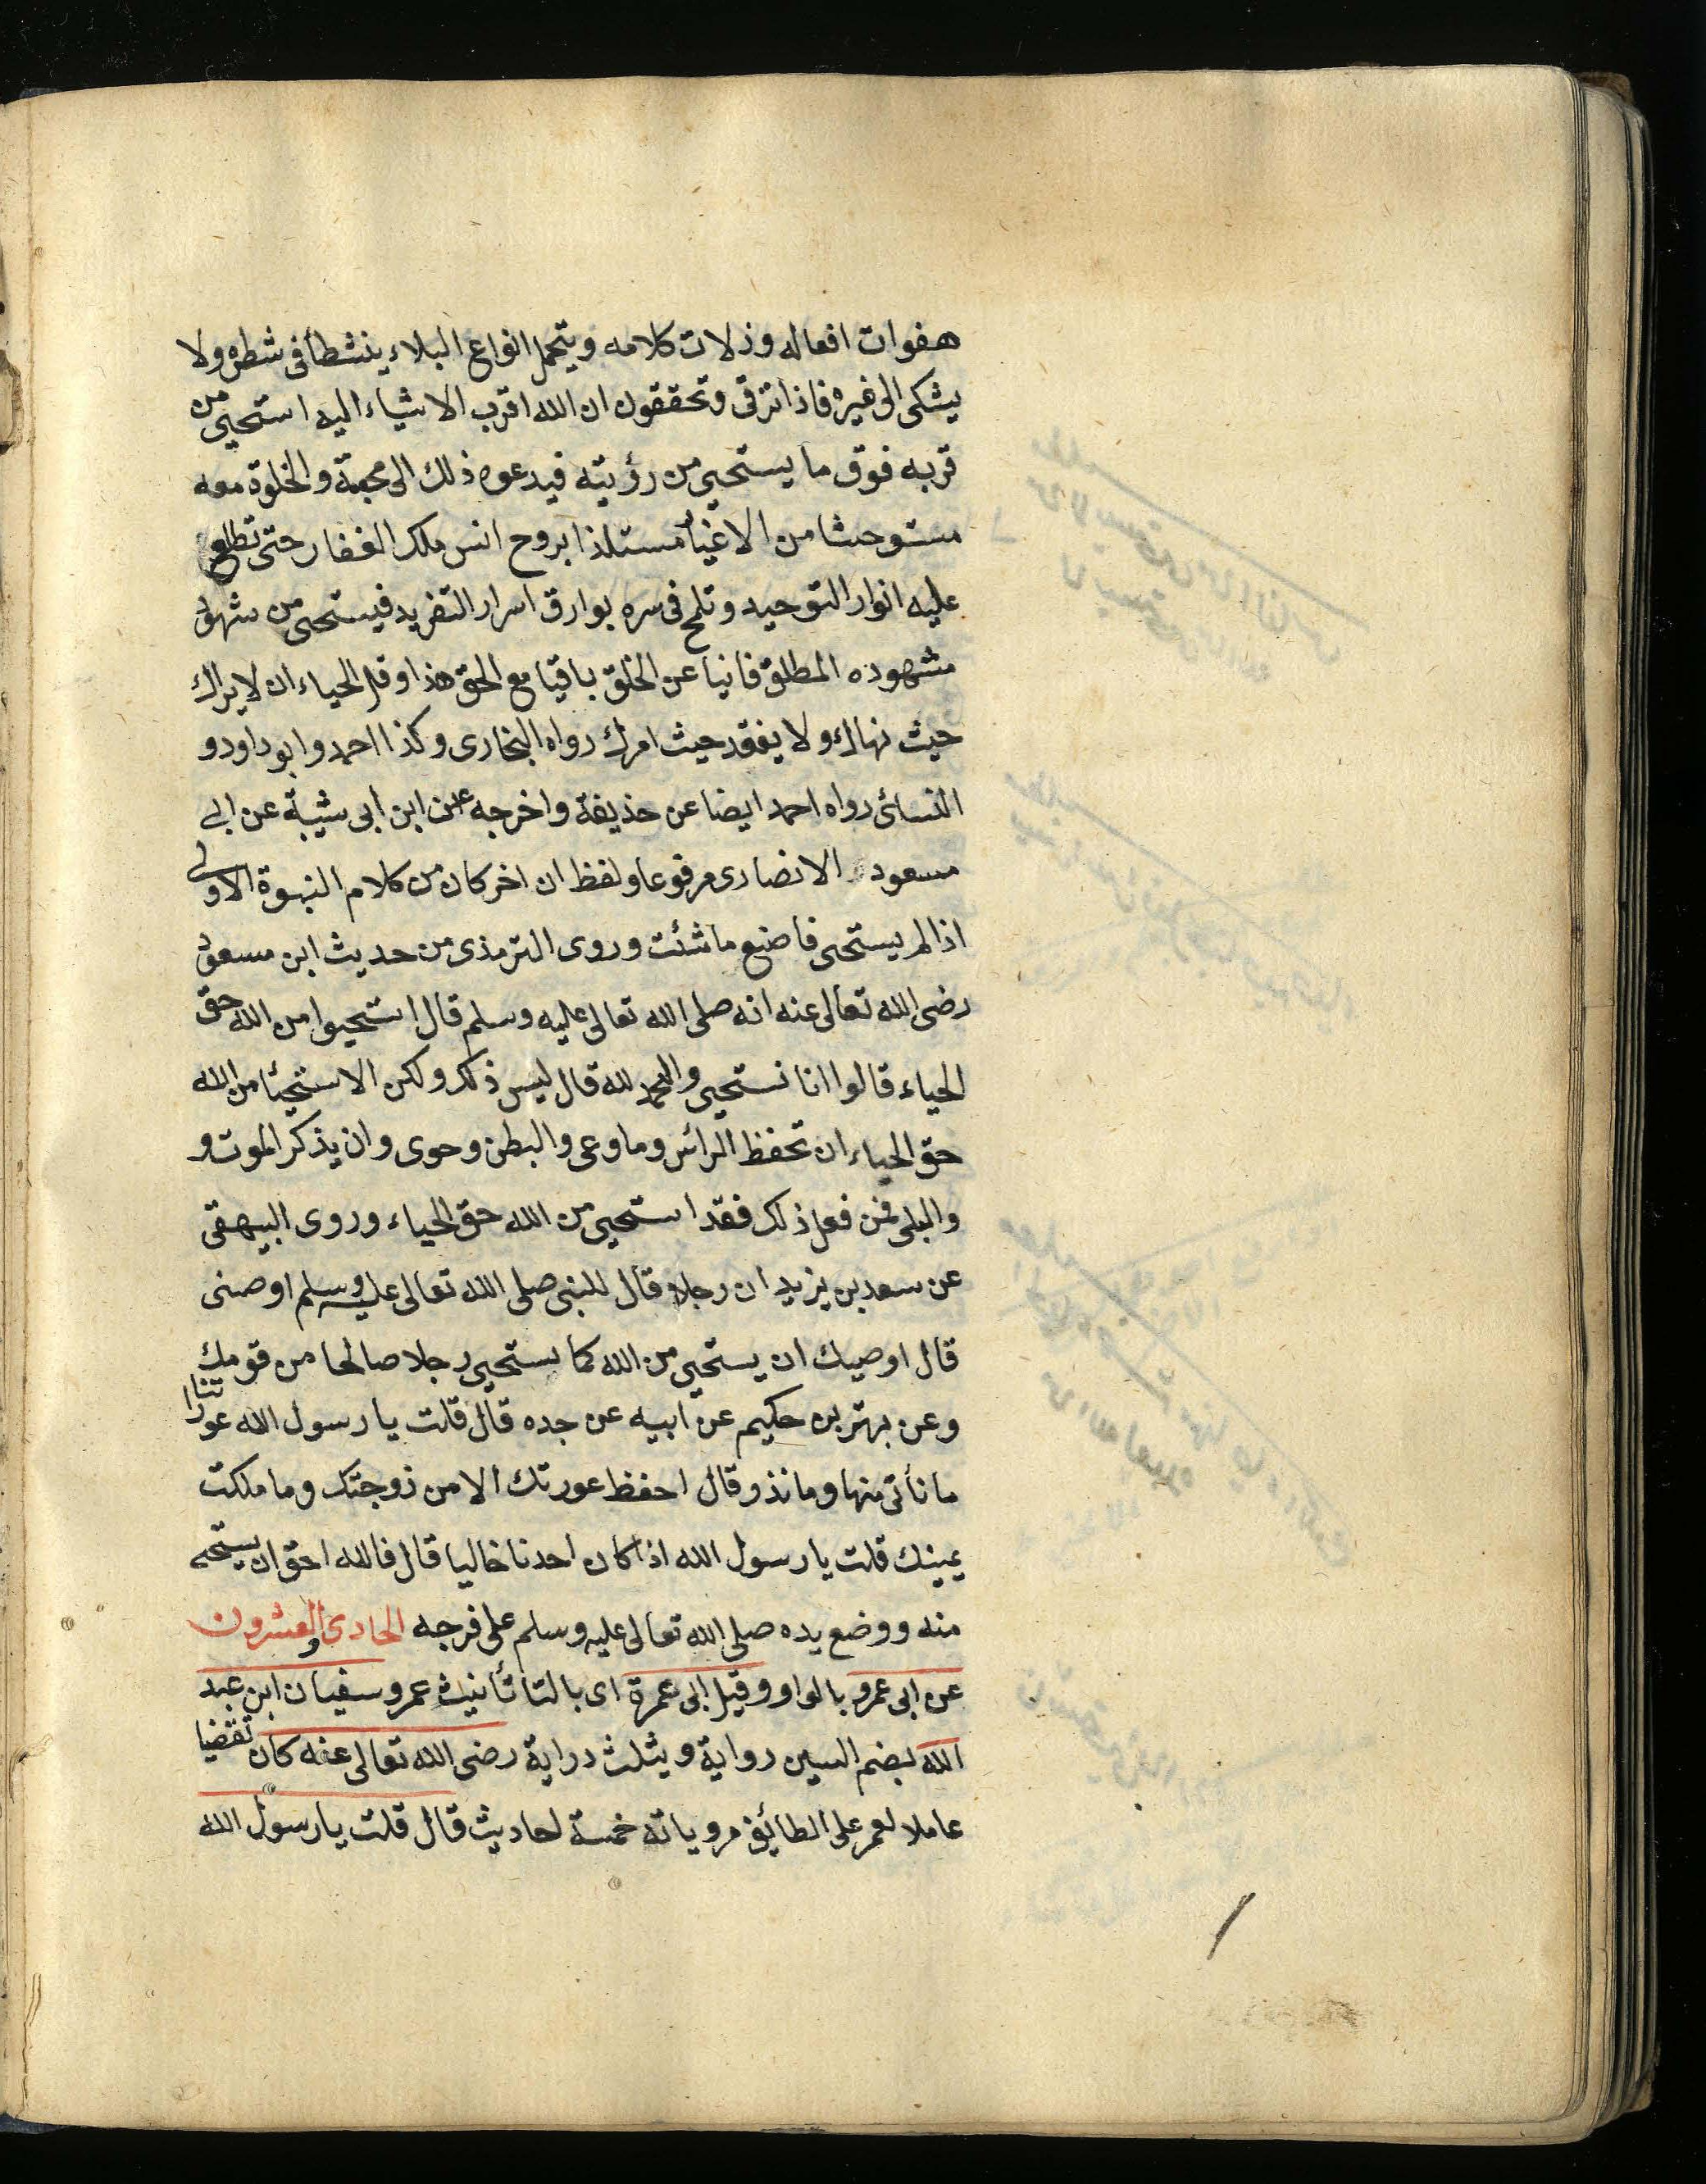 هفوات افعاله وزلات كلامه ويتحمل انواع البلاء ينشطأ فى شطره ولا
يشكى الى غيره فاذا ترقى وتحققون ان الله اقرب الاشياء اليه استحيى من
قربه فوق ما يستحيى من رؤيته فيدعوه ذلك الى محبة والخلوة معه
مستوحشا من الاغيار مستلذا بروح انس ملك الغفار حتى تطلع
عليه انوار التوحيد وتلمح فى سره بوارق اسرار التفريد فيستحى من شهود
مشهوده المطلق فانيا عن الخلق باقيا مع الحق هذا وقل الحياء ان لا يراك
حيث نهاك ولا يفقد حيث امرك رواه البخارى وكذا احمد وابو داود و
النسائى رواه احمد ايضا عن حذيفة واخرجه عن ابن ابى شيبة عن ابى
مسعود الانصارى مرفوعا ولفظ ان اخر كان من كلام النبوة الاولى
اذا لم يستحى فاصنع ما شئت وروى الترمذى من حديث ابن مسعود
رضى الله تعالى عنه انه صلى الله تعالى عليه وسلم قال استحيوا من الله حق
الحياء قالوا انا نستحيى والحمد لله قال ليس ذلك ولكن الاستحيئا من الله
حق الحياء ان تحفظ الرأس وما وعى والبطن وحوى وان يذكر الموت و
والبلى فمن فعل ذلك فقد استحيى من الله حق الحياء وروى البيهقى
عن سعد بن يزيد ان رجلا قال للنبى صلى الله تعالى عليه وسلم اوصنى
قال اوصيك ان يستحيى من الله كما يستحيى رجلا صالحا من قومك
وعن بهز بن حكيم عن ابيه عن جده قال قلت يا رسول الله عوراتنا
ما نأتى منها وما نذر وقال احفظ عورتك الا من زوجتك وما ملكت
يمينك قلت يا رسول الله اذا كان احدنا خاليا قال فالله احق ان يستحى
منه ووضع يده صلى الله تعالى عليه وسلم على فرجه الحادى والعشرون
عن ابى عمرو بالواو وقيل ابى عمرة اى بالتا تأنيث عمرو سفيان ابن عبد
الله بضم السين رواية ويثلث دراية رضى الله تعالى عنه كان تقضيا
عاملا لعمر على الطائف مروياته خمسة احاديث قال قلت يا رسول الله